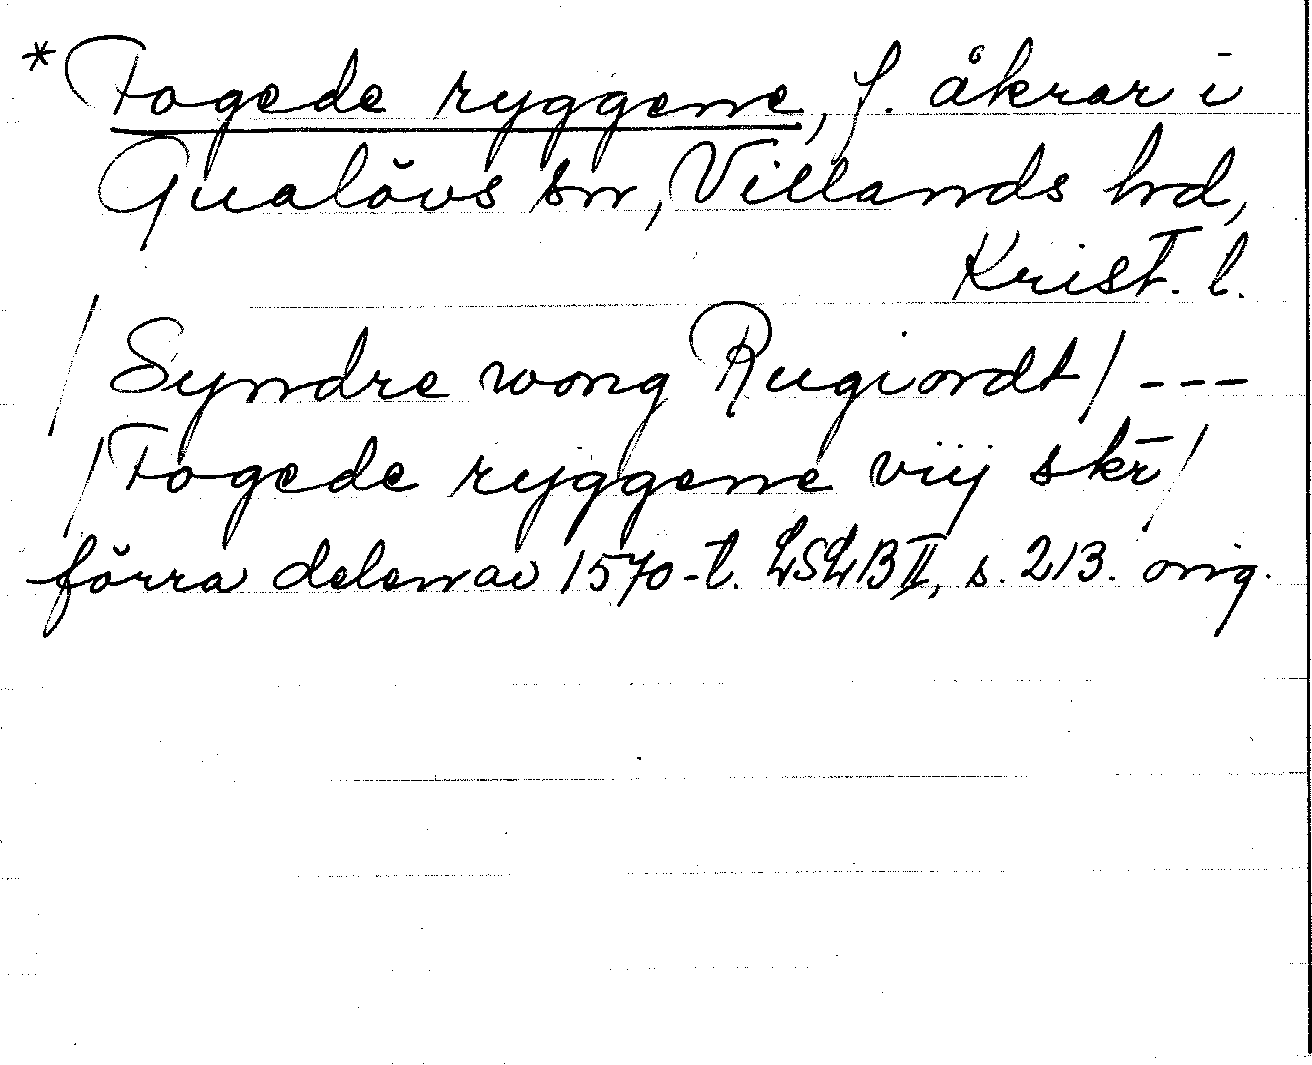 * Fogede ryggene, f. åkrar i
Gualövs sn, Villands hd,
Krist. l.
/ Syndre wong Rugiordt / ---
/ Fogede ryggene viij skr̄ /
förra delen av 1570-t. LSLB II, s. 213. orig.